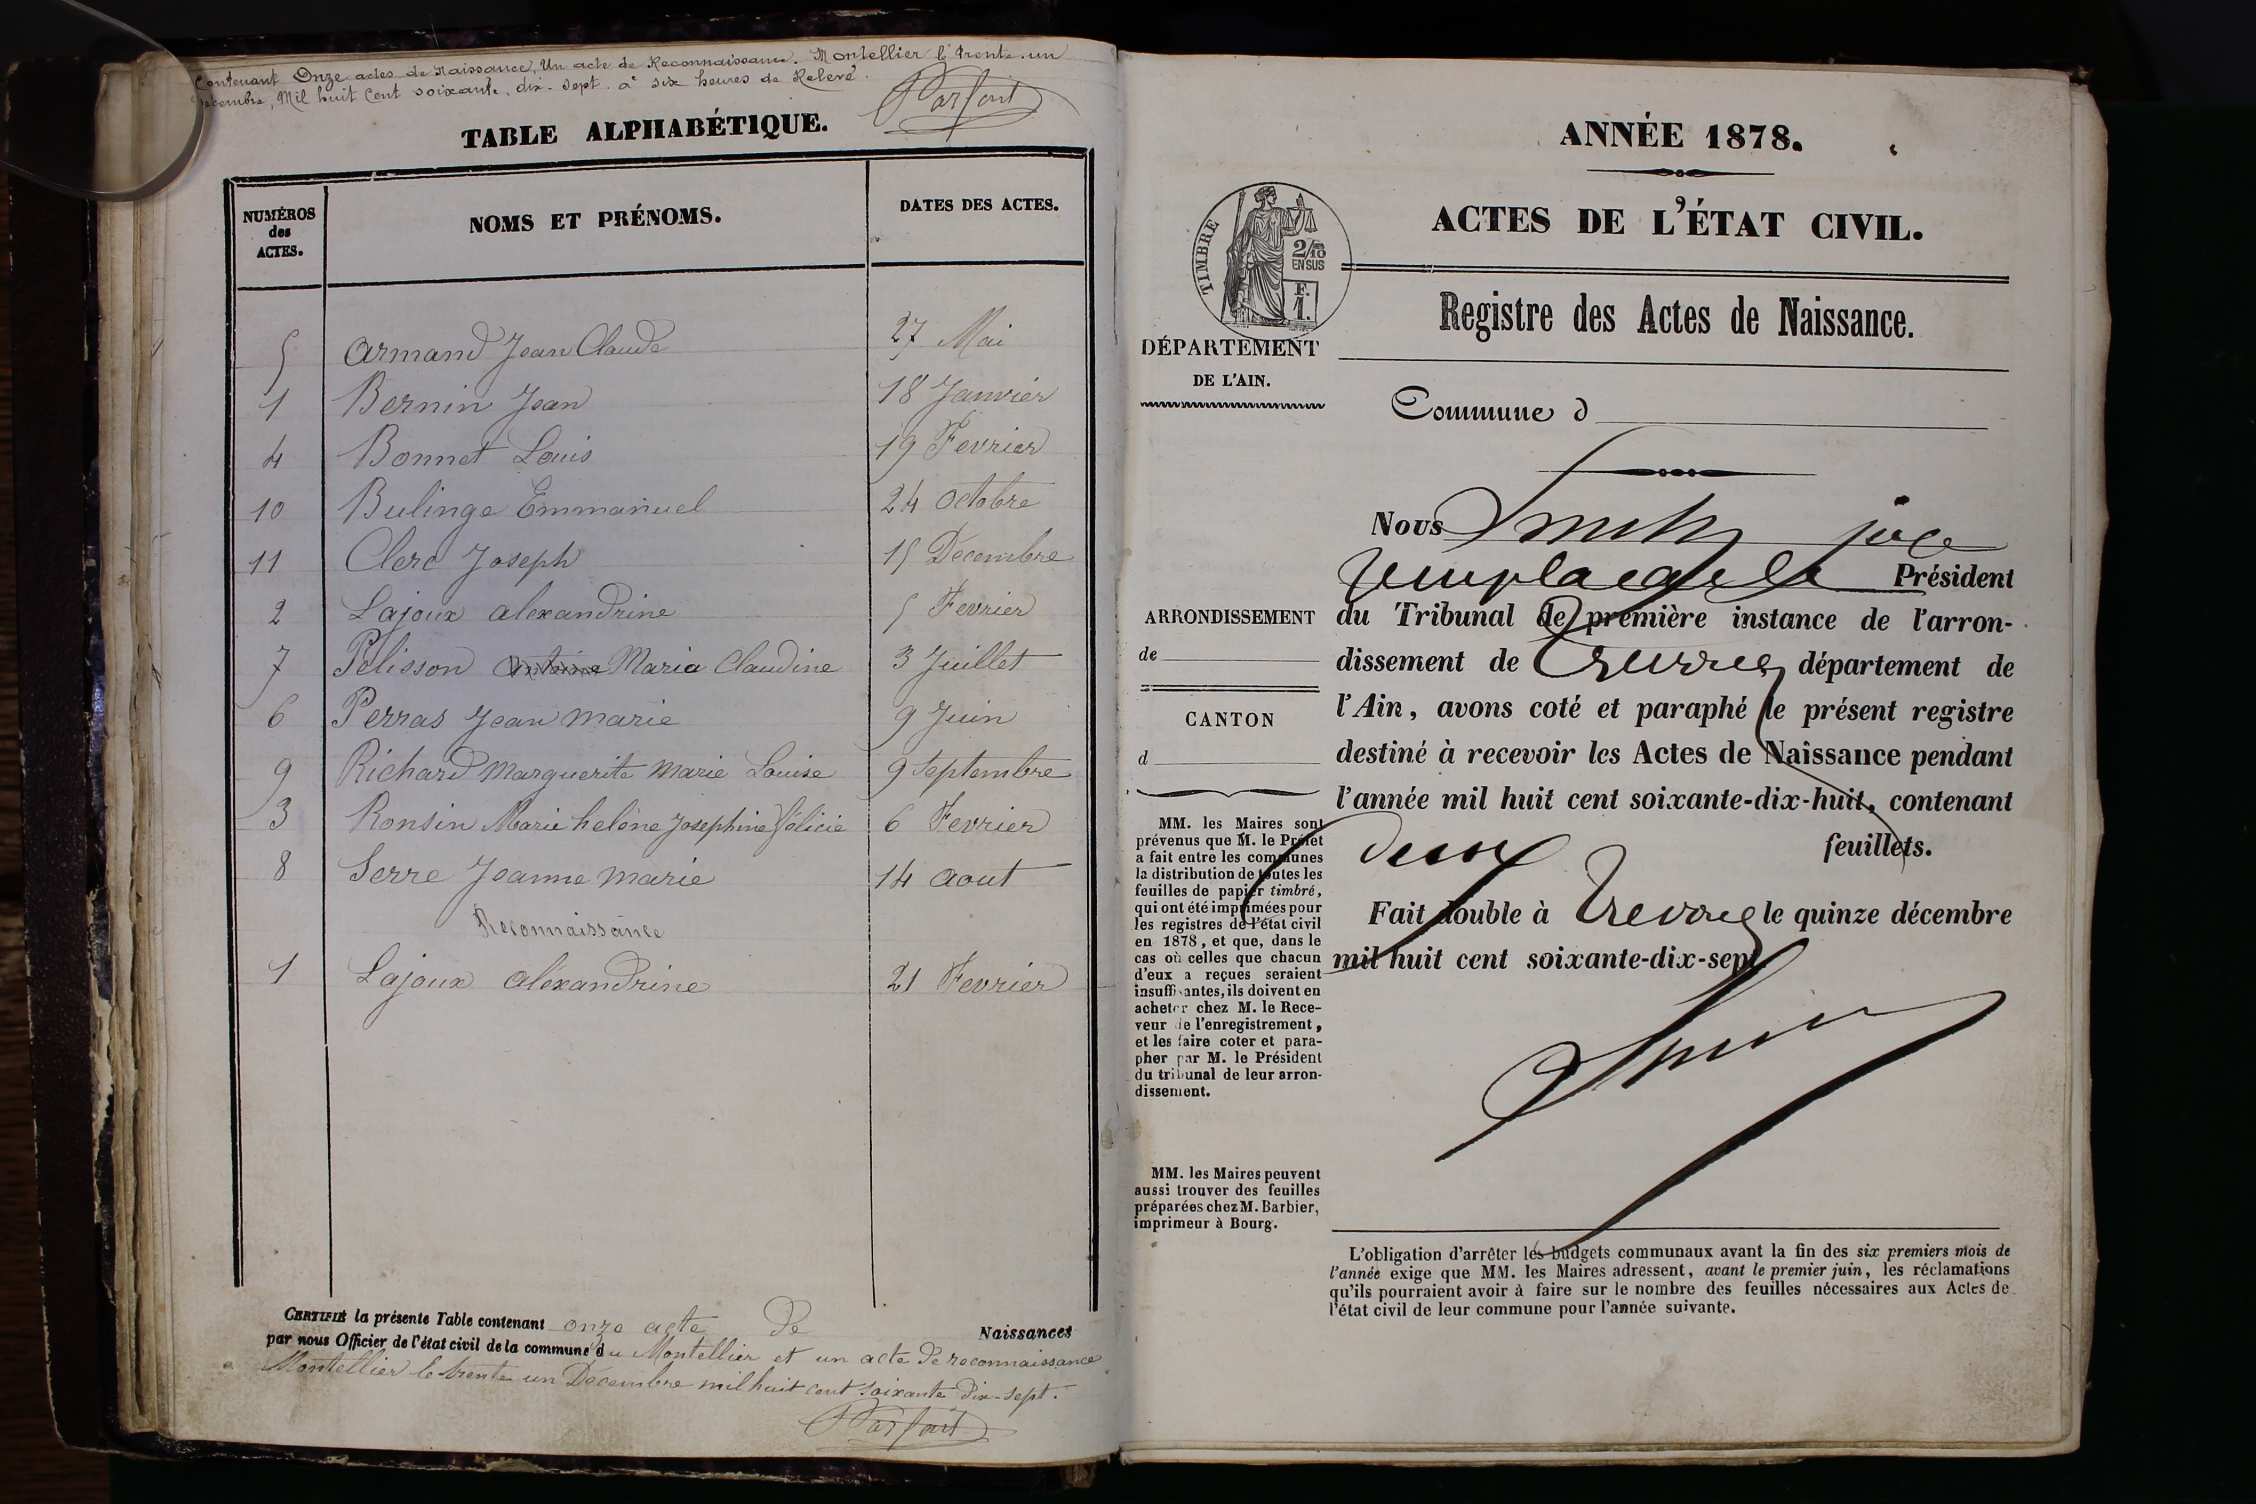 Contenant Onze actes de Naissance, Un acte de Reconnaissance. Montellier le trente-un
Decembre, Mil huit Cent soixante dix-sept à six heures de Relevé.
Parfait
TABLE ALPHABÉTIQUE.
NUMÉROS des ACTES. NOMS ET PRÉNOMS. DATES DES ACTES.
5 Armand Jean Claude 27 Mai
1 Bernin Jean 18 Janvier
4 Bonnet Louis 19 Fevrier
10 Bulinge Emmanuel 24 Octobre
11 Clerc Joseph 15 Decembre
2 Lajoux alexandrine 5 Fevrier
7 Pelisson Antoine Maria Claudine 3 Juillet
6 Perras Jean Marie 9 Juin
9 Richard Marguerite Marie Louise 9 Septembre
3 Ronsin Marie helène Josephine félicie 6 Fevrier
8 Serre Jeanne Marie 14 aout
Reconnaissance
1 Lajoux alexandrine 21 Fevrier
CERTIFIÉ la présente Table contenant onze acte de Naissances
par nous Officier de l'état civil de la commune du Montellier et un acte de reconnaissance
Montellier le trente un Decembre mil huit cent soixante dix-sept.
Parfait
ANNÉE 1878.
ACTES DE L'ÉTAT CIVIL.
TIMBRE
2/10
EN SUS
F.
1.
Registre des Actes de Naissance.
DÉPARTEMENT
DE L'AIN.
Commune d
Nous juge
Président
ARRONDISSEMENT
de
CANTON
d
du Tribunal de première instance de l'arron-
dissement de Trevoux département de
l'Ain, avons coté et paraphé le présent registre
destiné à recevoir les Actes de Naissance pendant
l'année mil huit cent soixante-dix-huit, contenant
deux feuillets.
Fait double à Trevoux le quinze décembre
mil huit cent soixante-dix-sept.
MM. les Maires sont
prévenus que M. le Préfet
a fait entre les communes
la distribution de toutes les
feuilles de papier timbré,
qui ont été imprimées pour
les registres de l'état civil
en 1878, et que, dans le
cas où celles que chacun
d'eux a reçues seraient
insuffisantes, ils doivent en
acheter chez M. le Rece-
veur de l'enregistrement,
et les faire coter et para-
pher par M. le Président
du tribunal de leur arron-
dissement.
MM. les Maires peuvent
aussi trouver des feuilles
préparées chez M. Barbier,
imprimeur à Bourg.
L'obligation d'arrêter les budgets communaux avant la fin des six premiers mois de
l'année exige que MM. les Maires adressent, avant le premier juin, les réclamations
qu'ils pourraient avoir à faire sur le nombre des feuilles nécessaires aux Actes de
l'état civil de leur commune pour l'année suivante.